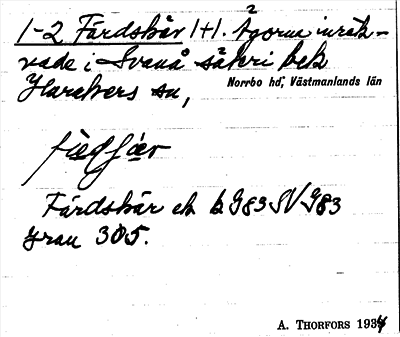 1-2 Färdskär 1+1. Ägorna inräk-
nade i Svanå säteri bek
Haraker sn,
Norrbo hd, Västmanlands län
Färdskär ek bl G83 SV G83
gran 305.
A. THORFORS 1934